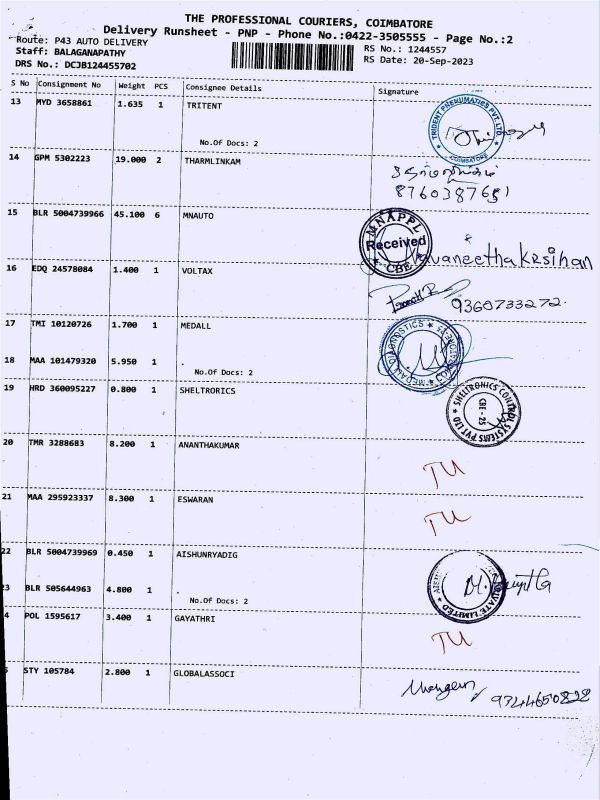 THE PROFESSIONAL COURIERS, COIMBATORE
Delivery Runsheet - PNP - Phone No.:0422-3505555 - Page No.:2
Route: P43 AUTO DELIVERY
RS No.: 1244557
Staff: BALAGANAPATHY
RS Date: 20-Sep-2023
DRS No.: DCJB124455702
S No Consignment No Weight PCS Consignee Details Signature
13 MYD 3658861 1.635 1 TRITENT
TRIDENT PNEUMATICS PVT. LTD.
COIMBATORE
No.Of Docs: 2
14 GPM 5302223 19.000 2 THARMLINKAM
8760387651
15 BLR 5004739966 45.100 6 MNAUTO
MNAPPL
Received
CBE
16 EDQ 24578084 1.400 1 VOLTAX
9360733272
17 TMI 10120726 1.700 1 MEDALL
MEDALL DIAGNOSTICS
18 MAA 101479320 5.950 1
No.Of Docs: 2
19 HRD 360095227 0.800 1 SHELTRORICS
SHELTRONICS CONTROL SYSTEMS PVT LTD
CBE - 25
20 TMR 3288683 8.200 1 ANANTHAKUMAR
TU
21 MAA 295923337 8.300 1 ESWARAN
TU
22 BLR 5004739969 0.450 1 AISHUNRYADIG
PRIVATE LIMITED
3 BLR 505644963 4.800 1
No.Of Docs: 2
4 POL 1595617 3.400 1 GAYATHRI
TU
STY 105784 2.800 1 GLOBALASSOCI
9344650828